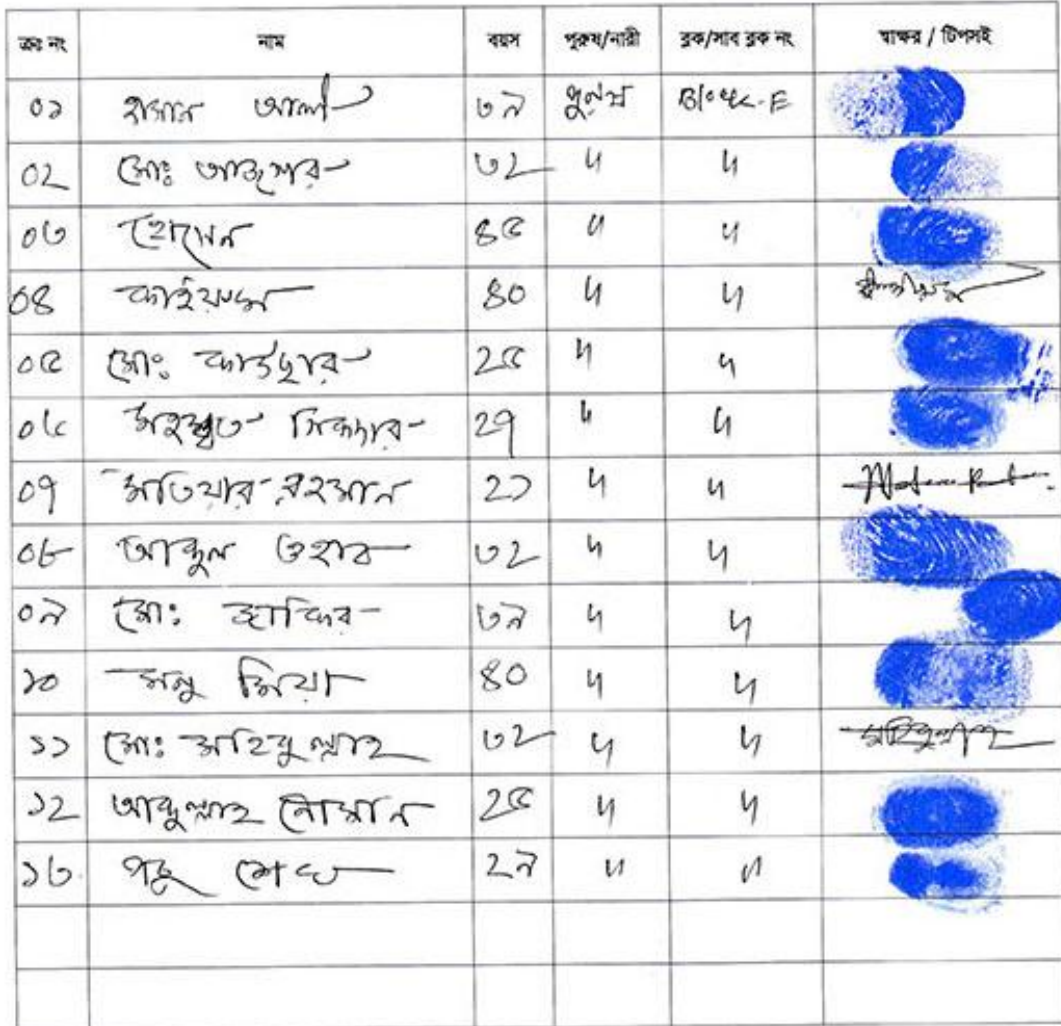 ক্রঃ নং নাম বয়স পুরুষ/নারী ব্লক/সাব ব্লক নং স্বাক্ষর / টিপসই
০১ হাসান আলী ৩৯ পুরুষ Block-E
০২ মোঃ আফসার ৩২ 〃 〃
০৩ হোসেন ৪৫ 〃 〃
০৪ কাইয়ুম ৪০ 〃 〃
০৫ মোঃ কাউছার ২৫ 〃 〃
০৬ সিকদার ২৭ 〃 〃
০৭ মতিয়ার রহমান ২১ 〃 〃
০৮ আব্দুল ওহাব ৩২ 〃 〃
০৯ মোঃ জাকির ৩৯ 〃 〃
১০ মনু মিয়া ৪০ 〃 〃
১১ মোঃ মহিবুল্লাহ ৩২ 〃 〃 মহিবুল্লাহ
১২ আব্দুল্লাহ নোমান ২৫ 〃 〃
১৩ পচু শেখ ২৯ 〃 〃